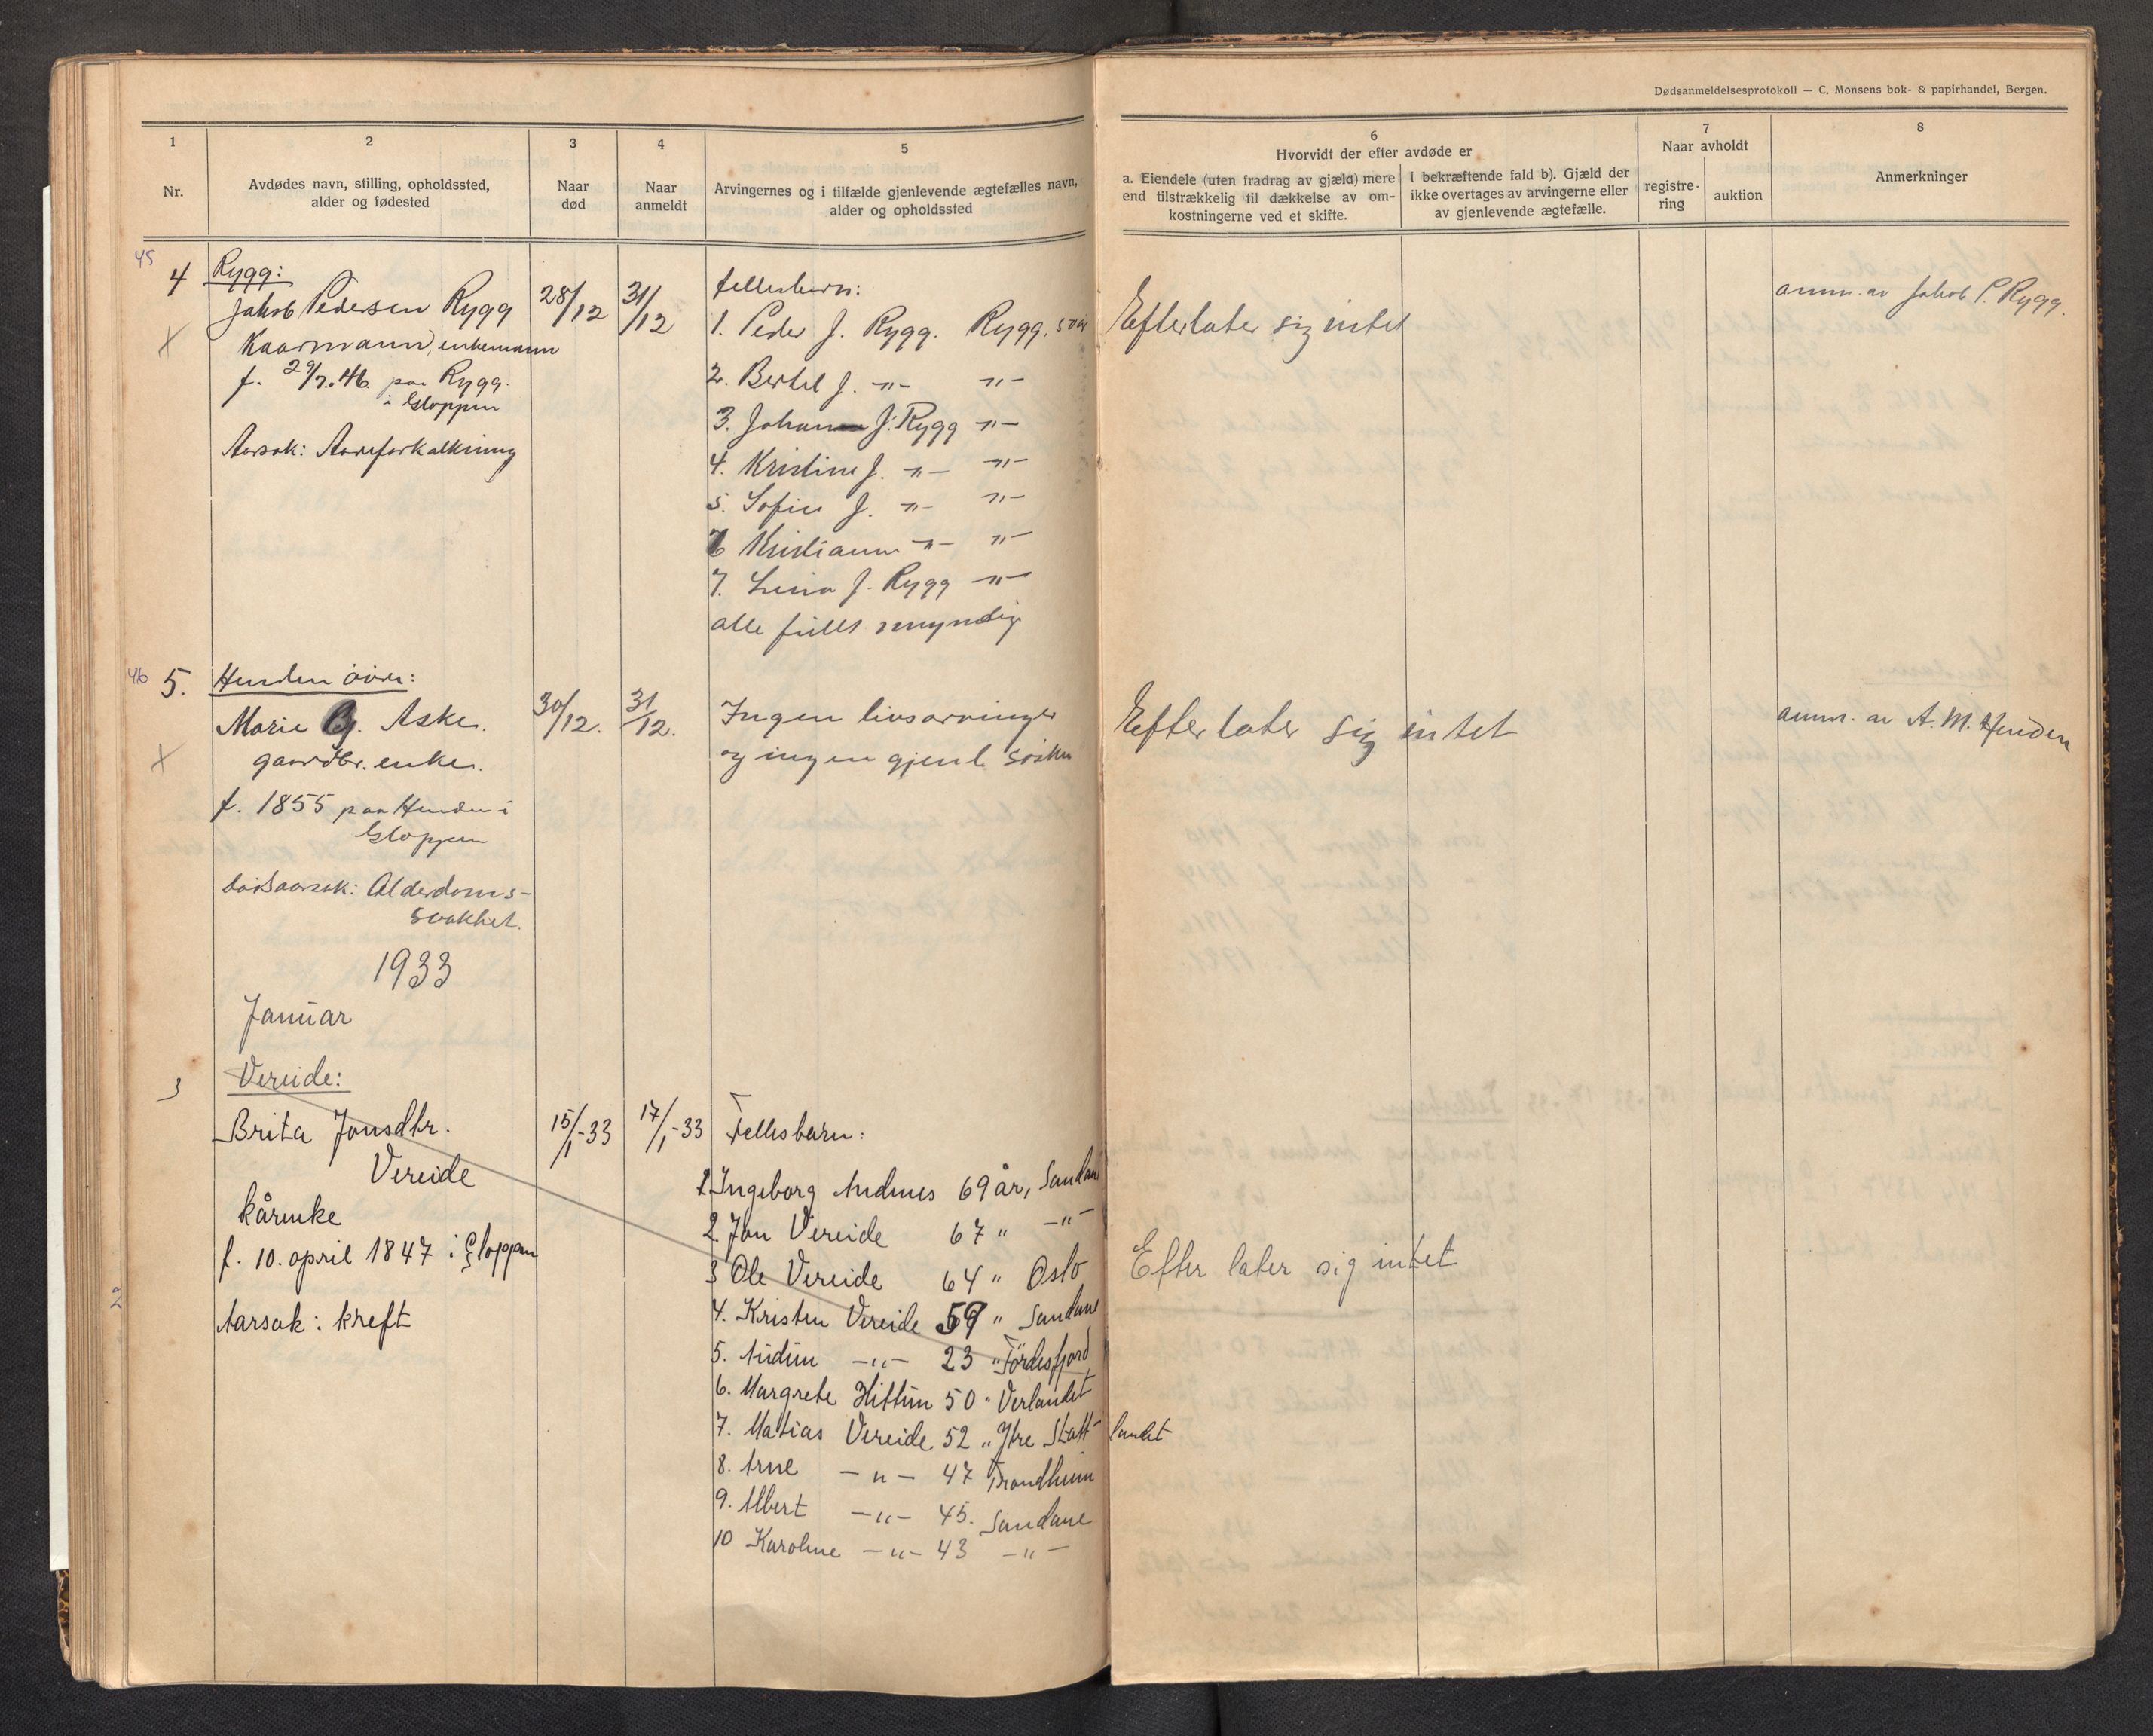 Dødsanmeldelsesprotokoll — C. Monsens bok- & papirhandel, Bergen.
1
Nr.
2
Avdødes navn, stilling, opholdssted,
alder og fødested
3
Naar
død
4
Naar
anmeldt
5
Arvingernes og i tilfælde gjenlevende ægtefælles navn,
alder og opholdssted
6
Hvorvidt der efter avdøde er
a. Eiendele (uten fradrag av gjæld) mere
end tilstrækkelig til dækkelse av om-
kostningerne ved et skifte.
I bekræftende fald b). Gjæld der
ikke overtages av arvingerne eller
av gjenlevende ægtefælle.
7
Naar avholdt
registre-
ring
auktion
8
Anmerkninger
45
4
Rygg:
Jakob Pedersen Rygg
Kaarmann, enkemann
f. 29/7.46 paa Rygg.
i Gloppen
Aarsak: Aareforkalkning
28/12
31/12
fellesbarn:
1. Peder J. Rygg. Rygg,
2. Bertel J. -"- -"-
3. Johan J. Rygg -"-
4. Kristine J. -"- -"-
5. Sofie J. -"- -"-
6 Kristianne -"- -"-
7. Lina J. Rygg -"-
alle fullt myndig
Efterlater sig intet
anm. av Jakob P. Rygg.
46
5.
Henden övre:
Marie J. Aske.
gaardbr. enke.
f. 1855 paa Henden i
Gloppen
dödsaarsak: Alderdoms-
svakhet.
30/12.
31/12.
Ingen livsarvinger
og ingen gjenl. sösken
Efterlater sig intet
anm. av A. M. Henden
1933
Januar
3
Vereide:
Brita Jonsdtr.
Vereide
kårenke
f. 10. april 1847 i Gloppen
Aarsak: kreft
2
15/1-33
17/1-33
Fellesbarn:
1 Ingeborg Andenes 69 år, Sandane
2 Jon Vereide 67 " -"-
3 Ole Vereide 64 " Oslo
4. Kristen Vereide 59 " Sandane
5. Audun -"- 23 " Fördesfjord
6. Margrete Hittun 50 " Verlandet
7. Matias Vereide 52 " Ytre Statt-landet
8. Arne -"- 47 Trondheim
9. Albert -"- 45. Sandane
10 Karoline -"- 43 -"-
Efter later sig intet